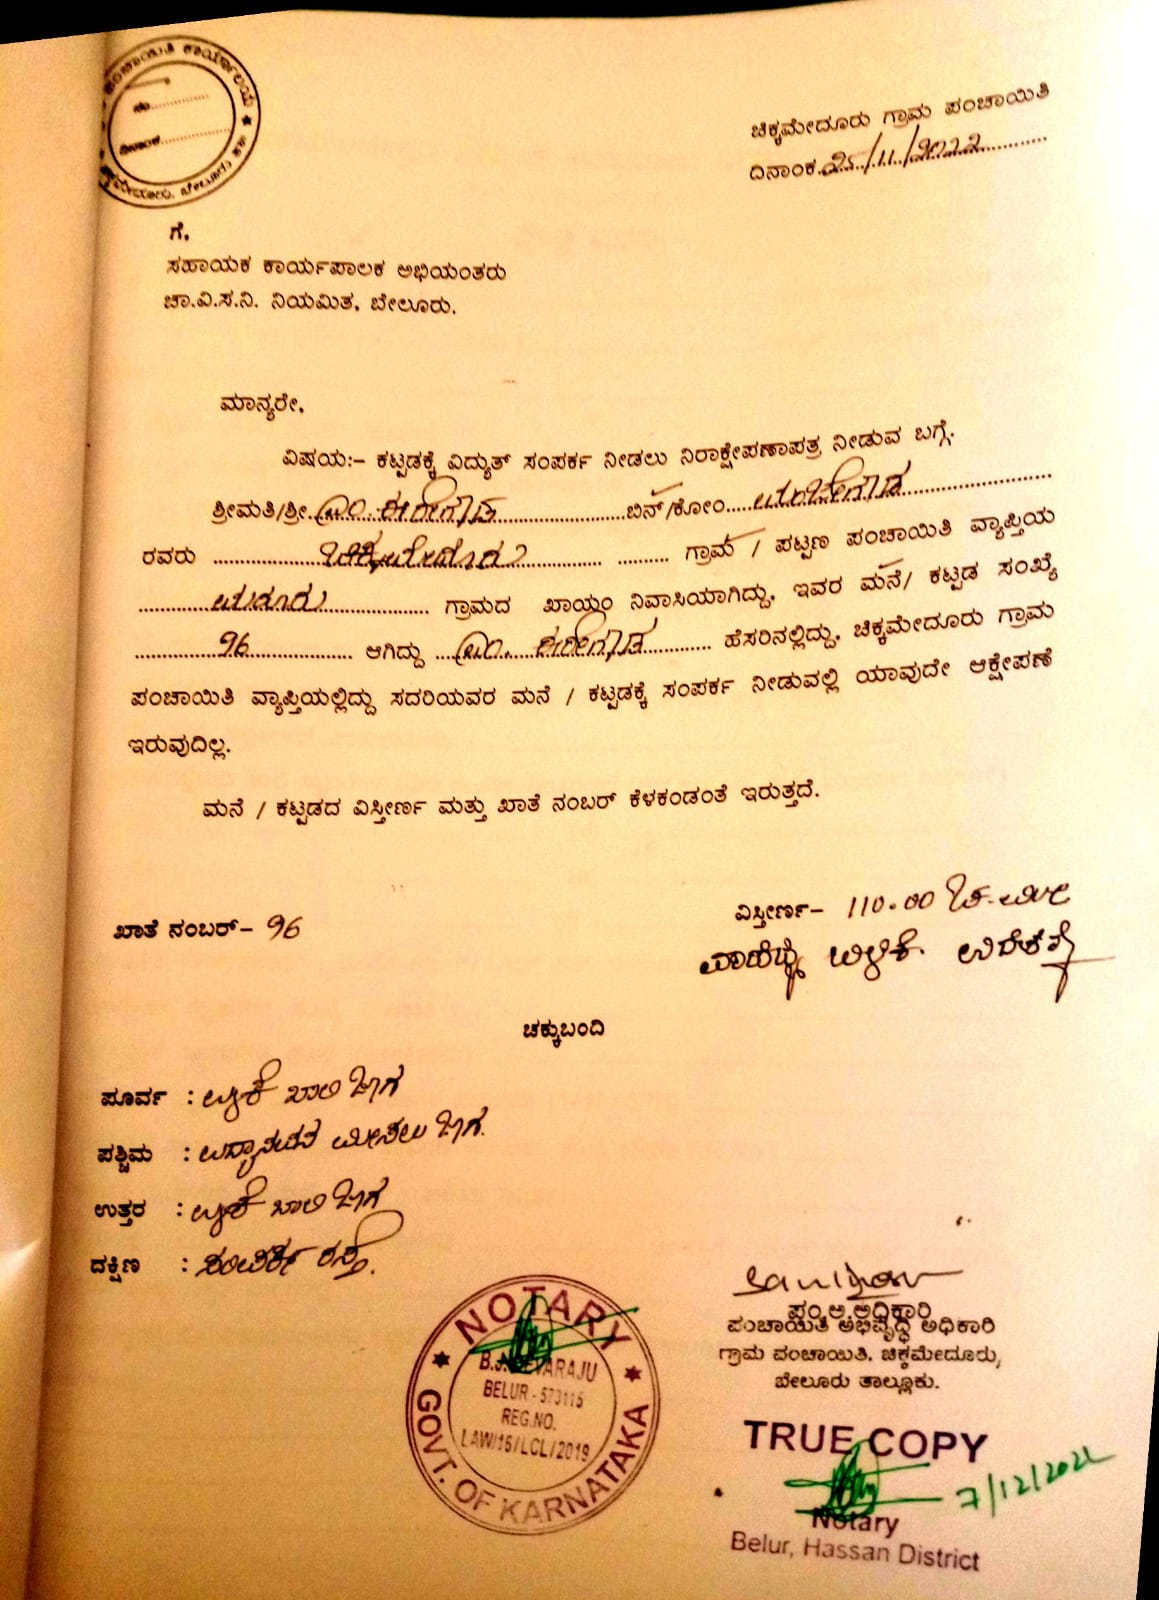 ಪಂಚಾಯಿತಿ ಕಾರ್ಯಾಲಯ
ನಂ..............
ದಿನಾಂಕ..............
ಬೇಲೂರು
ಚಿಕ್ಕಮೇದೂರು ಗ್ರಾಮ ಪಂಚಾಯಿತಿ
ದಿನಾಂಕ.25/11/2022
ಗೆ,
ಸಹಾಯಕ ಕಾರ್ಯಪಾಲಕ ಅಭಿಯಂತರು
ಚಾ.ವಿ.ಸ.ನಿ. ನಿಯಮಿತ, ಬೇಲೂರು.
ಮಾನ್ಯರೇ,
ವಿಷಯ:- ಕಟ್ಟಡಕ್ಕೆ ವಿದ್ಯುತ್ ಸಂಪರ್ಕ ನೀಡಲು ನಿರಾಕ್ಷೇಪಣಾಪತ್ರ ನೀಡುವ ಬಗ್ಗೆ.
ಶ್ರೀಮತಿ/ಶ್ರೀ ಎಂ. ಈರೇಗೌಡ ಬಿನ್/ಕೋಂ ಮಂಚೇಗೌಡ
ರವರು ಚಿಕ್ಕಮೇದೂರು ಗ್ರಾಮ / ಪಟ್ಟಣ ಪಂಚಾಯಿತಿ ವ್ಯಾಪ್ತಿಯ
ಗ್ರಾಮದ ಖಾಯಂ ನಿವಾಸಿಯಾಗಿದ್ದು, ಇವರ ಮನೆ/ ಕಟ್ಟಡ ಸಂಖ್ಯೆ
96 ಆಗಿದ್ದು ಎಂ. ಈರೇಗೌಡ ಹೆಸರಿನಲ್ಲಿದ್ದು, ಚಿಕ್ಕಮೇದೂರು ಗ್ರಾಮ
ಪಂಚಾಯಿತಿ ವ್ಯಾಪ್ತಿಯಲ್ಲಿದ್ದು ಸದರಿಯವರ ಮನೆ / ಕಟ್ಟಡಕ್ಕೆ ಸಂಪರ್ಕ ನೀಡುವಲ್ಲಿ ಯಾವುದೇ ಆಕ್ಷೇಪಣೆ
ಇರುವುದಿಲ್ಲ.
ಮನೆ / ಕಟ್ಟಡದ ವಿಸ್ತೀರ್ಣ ಮತ್ತು ಖಾತೆ ನಂಬರ್ ಕೆಳಕಂಡಂತೆ ಇರುತ್ತದೆ.
ಖಾತೆ ನಂಬರ್- 96
ವಿಸ್ತೀರ್ಣ- 110.00 ಚ.ಮೀ
ವಾಣಿಜ್ಯ ಬಳಕೆ ಉದ್ದೇಶಕ್ಕೆ
ಚಕ್ಕುಬಂದಿ
ಪೂರ್ವ : ಖಾಲಿ ಜಾಗ
ಪಶ್ಚಿಮ : ಉದ್ಯಾನವನ ಮೀಸಲು ಜಾಗ.
ಉತ್ತರ : ಖಾಲಿ ಜಾಗ
ದಕ್ಷಿಣ : ಸಂಪರ್ಕ ರಸ್ತೆ.
ಪಂ.ಅ.ಅಧಿಕಾರಿ
ಪಂಚಾಯಿತಿ ಅಭಿವೃದ್ಧಿ ಅಧಿಕಾರಿ
ಗ್ರಾಮ ಪಂಚಾಯಿತಿ, ಚಿಕ್ಕಮೇದೂರು,
ಬೇಲೂರು ತಾಲ್ಲೂಕು.
NOTARY
B.J. DEVARAJU
BELUR - 573115
REG.NO.
LAW/16/LCL/2019
GOVT. OF KARNATAKA
TRUE COPY
7/12/2022
Notary
Belur, Hassan District